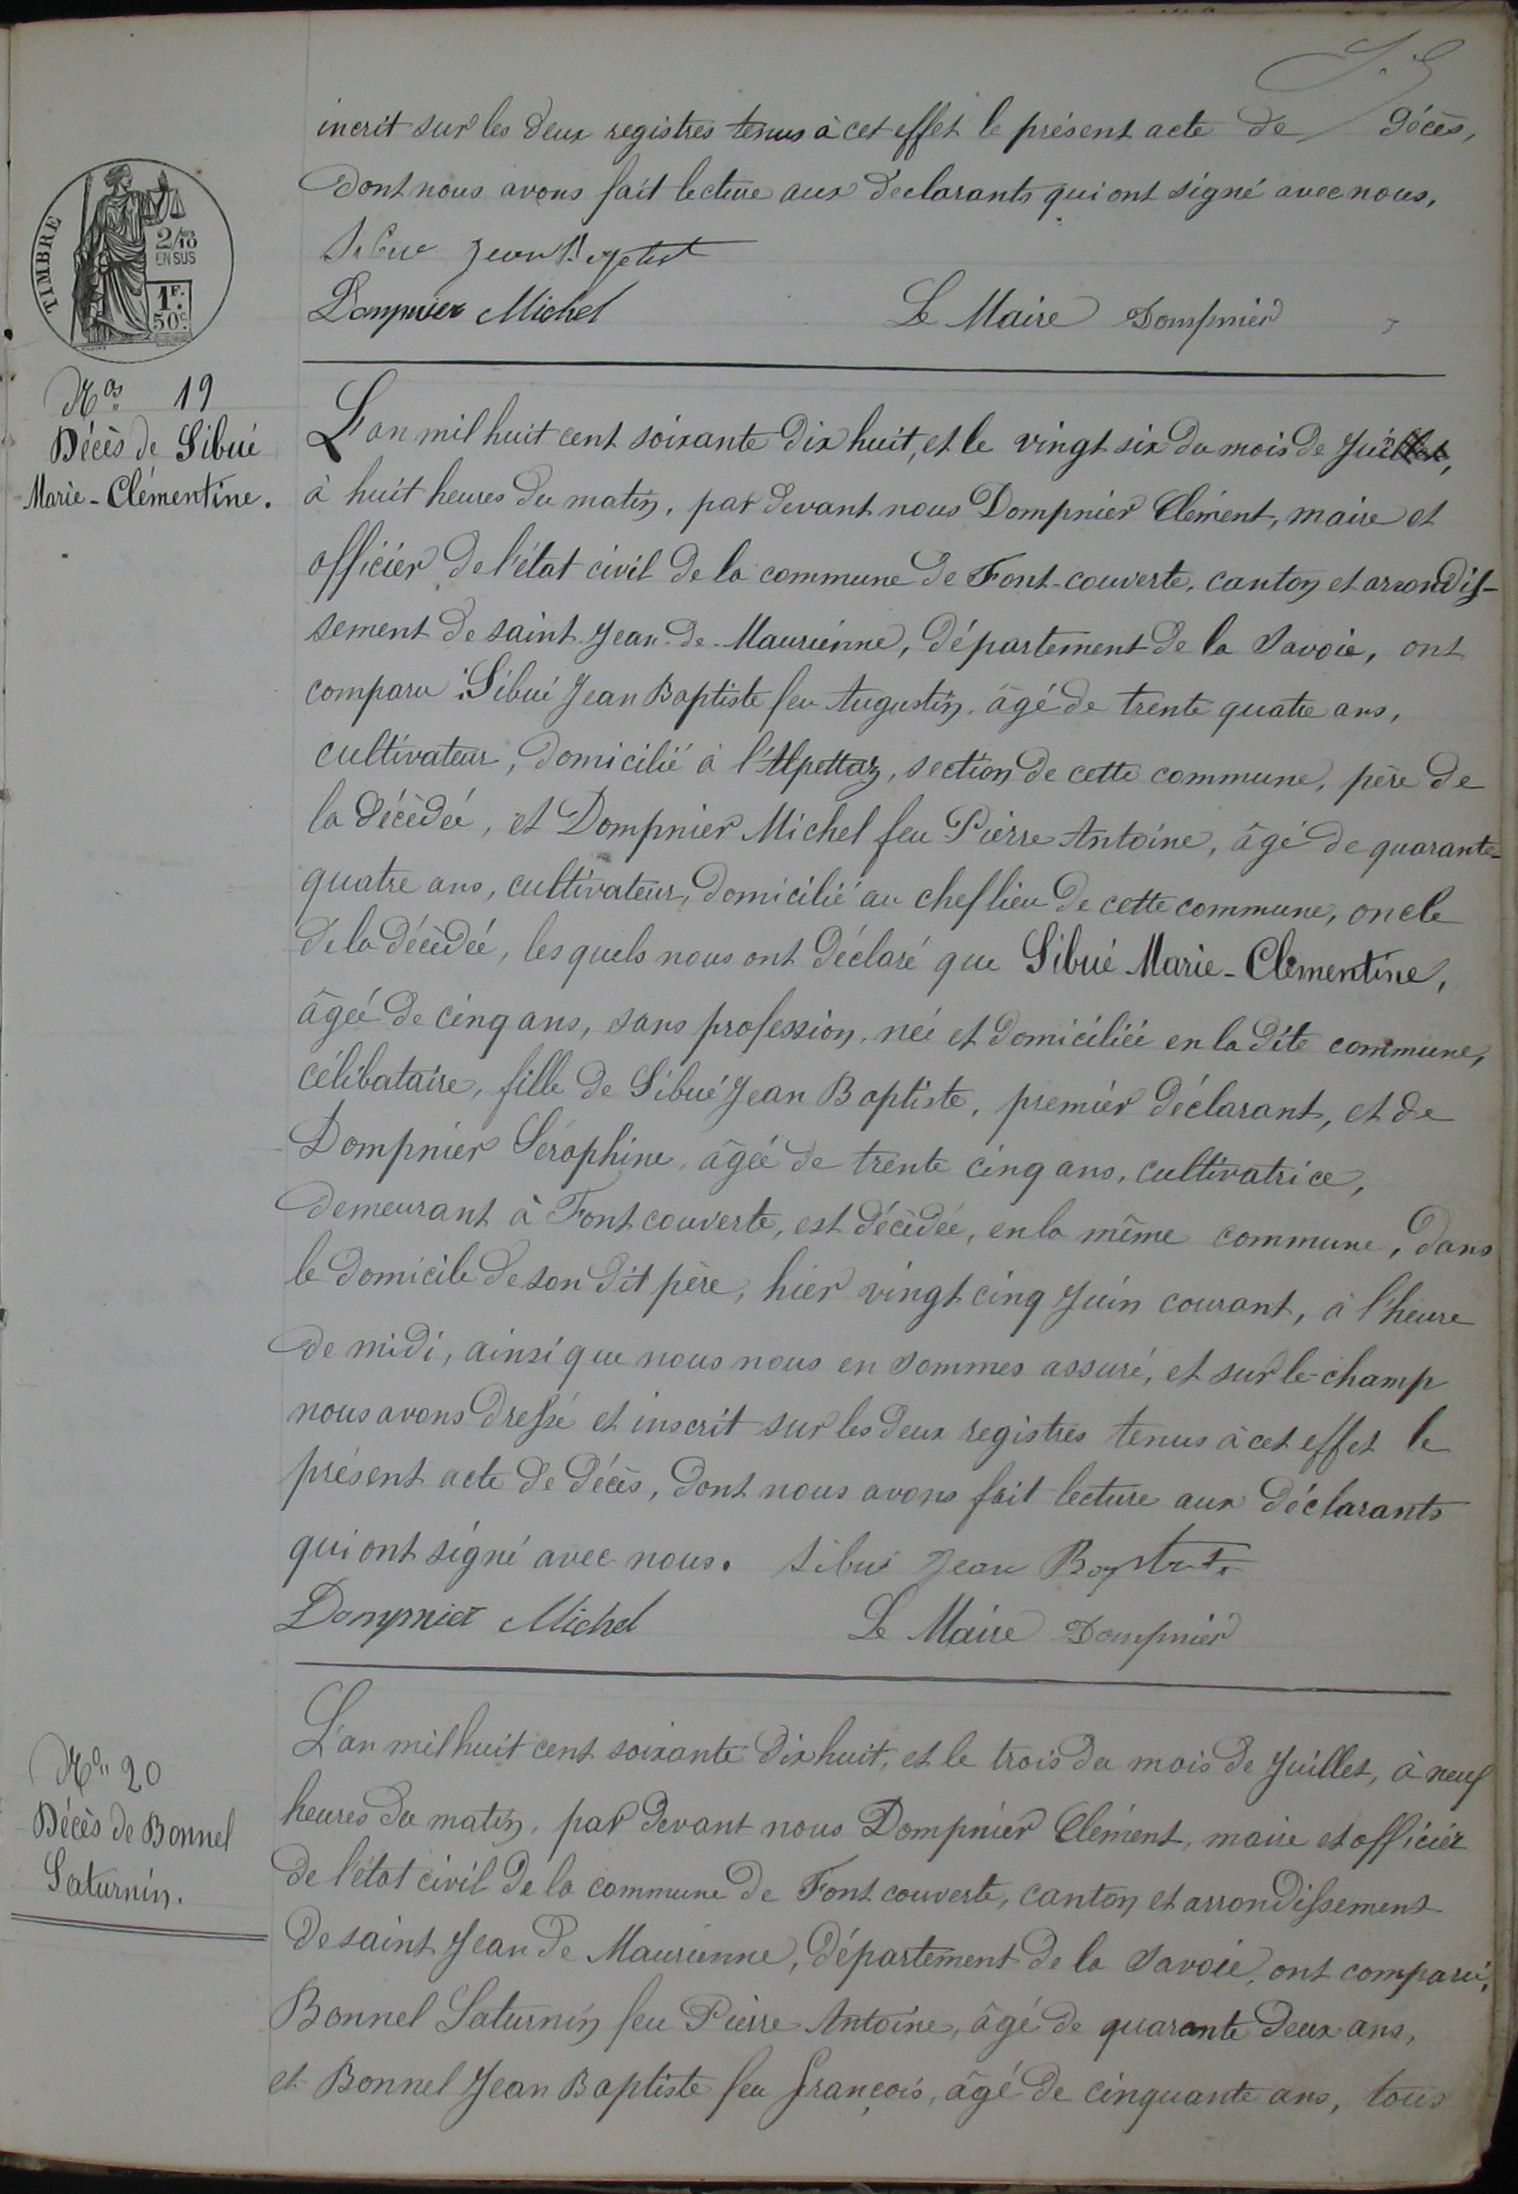 incrit sur les deux registres tenus à cet effet le présent acte de décès,
dont nous avons fait lecture aux declarants qui ont signé avec nous,
Sibue Jean Baptist
Dompnier Michel Le Maire Dompnier
TIMBRE
2/10
EN SUS
1F.
50c.
Nos 19
Décès de Sibué
Marie-Clémentine.
L'an mil huit cent soixante dix huit, et le vingt six du mois de Juin,
à huit heures du matin, par devant nous Dompnier Clément, maire et
officier de l'état civil de la commune de Font-couverte, canton et arrondis-
sement de saint Jean-de-Maurienne, département de la Savoie, ont
comparu : Sibué Jean Baptiste feu Augustin, âgé de trente quatre ans,
cultivateur, domicilié à l'Alpettaz, section de cette commune, père de
la décédée, et Dompnier Michel feu Pierre Antoine, âgé de quarante-
quatre ans, cultivateur, domicilié au chef lieu de cette commune, oncle
de la décédée, les quels nous ont déclaré que Sibué Marie-Clementine,
âgée de cinq ans, sans profession, née et domiciliée en la dite commune,
célibataire, fille de Sibué Jean Baptiste, premier déclarant, et de
Dompnier Séraphine, âgée de trente cinq ans, cultivatrice,
demeurant à Font couverte, est décédée, en la même commune, dans
le domicile de son dit père, hier vingt cinq Juin courant, à l'heure
de midi, ainsi que nous nous en sommes assuré, et sur le-champ
nous avons dressé et inscrit sur les deux registres tenus à cet effet le
présent acte de décès, dont nous avons fait lecture aux déclarants
qui ont signé avec nous. Sibué Jean Baptiste
Dompnier Michel Le Maire Dompnier
No 20
Décès de Bonnel
Saturnin.
L'an mil huit cent soixante dix huit, et le trois du mois de Juillet, à neuf
heures du matin, par devant nous Dompnier Clément, maire et officier
de l'état civil de la commune de Font couverte, canton et arrondissement
de saint Jean de Maurienne, département de la Savoie, ont comparu,
Bonnel Saturnin feu Pierre Antoine, âgé de quarante deux ans,
et Bonnel Jean Baptiste feu françois, âgé de cinquante ans, tous